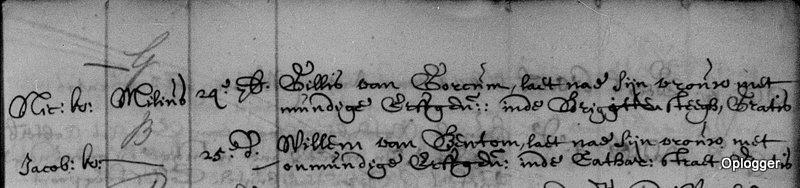 G
Nic: k: Milius 24. d. Gillis van Gorcum, laet nae sijn vrouw met
mundige Erffgen:: inde Brigitten steegh, Gratis
B
Jacob: k: 25. d. Willem van Bentom, laet nae sijn vrouw met
onmundige Erffgen: inde Cathar: straet
Oplogger.